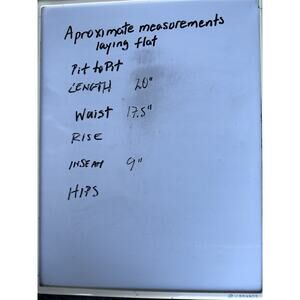 Aproximate measurements
laying flat
Pit to Pit
LENGTH 20"
Waist 17.5"
RISE
INSEAM 9"
HIPS